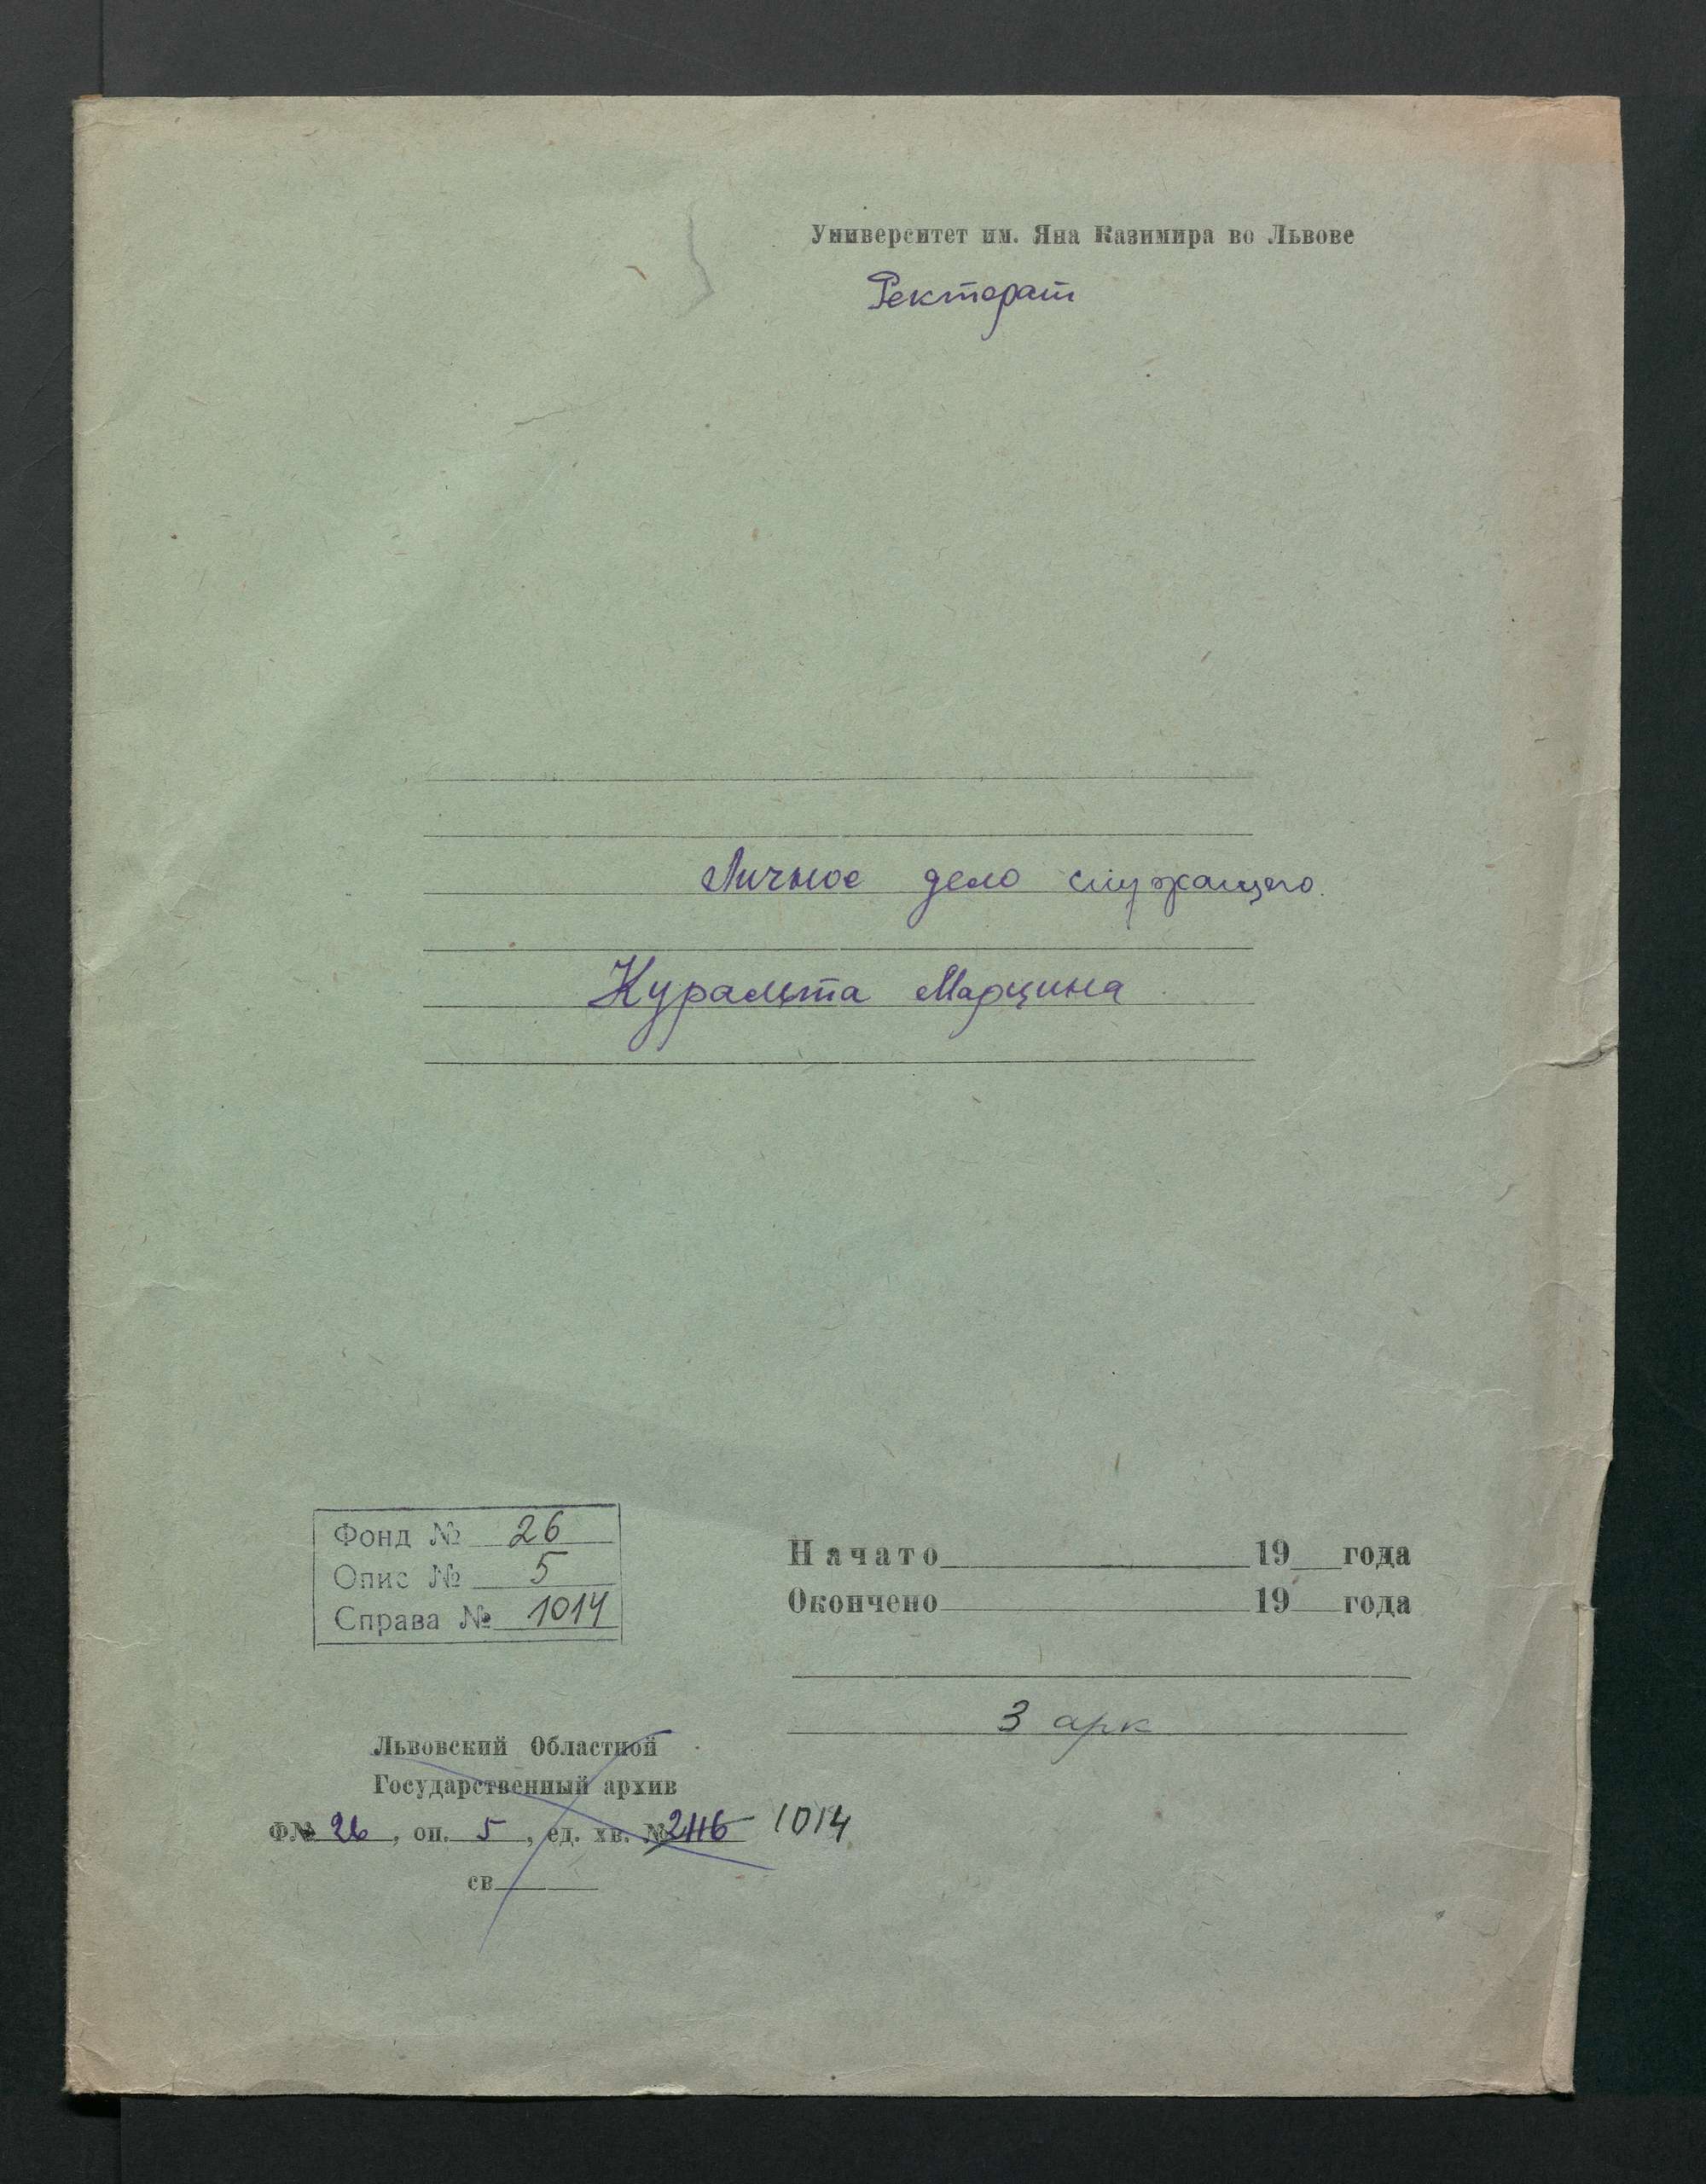 Университет им. Яна Казимира во Львове
Ректорат
Личное дело служащего.
Куральта Марцина
Фонд № 26
Опис № 5
Справа № 1014
Начато 19 года
Окончено 19 года
3 арк
Львовский Областной
Государственный архив
Ф№ 26, оп. 5, ед. хв. № 2116 1014
св